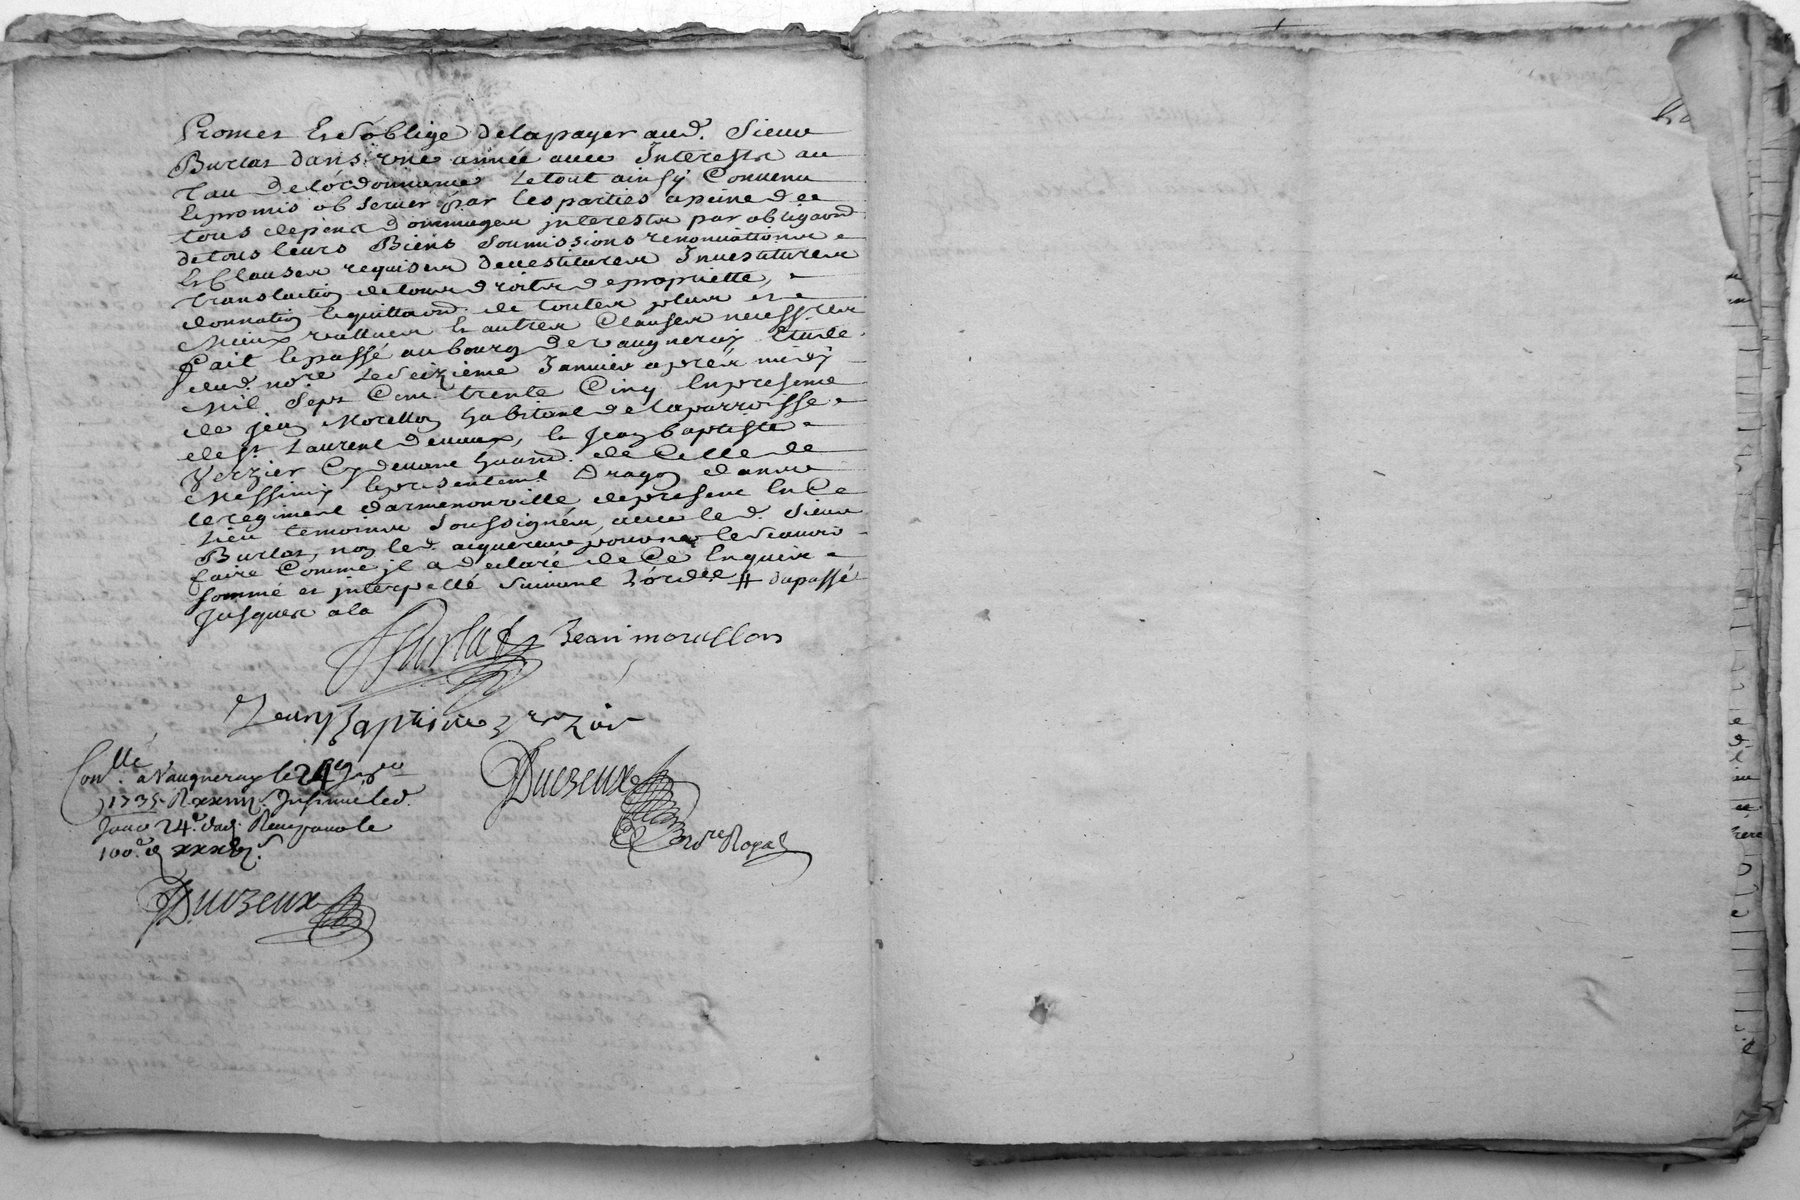 Promet Et s'oblige de la payer aud. Sieur
Burlat dans une année avec Interests au
Taux de l'ordonnance Le tout ainsy Convenu
Et promis observer par Les parties a peine de
tous depens dommages interests par obligaond.
de tous leurs Biens Soumissions renonciations
Et Clauses requises devestitures Investitures
translation de tous droits de proprietté,
donnation Et quittaond. de toutes plus et
Mieux vallues Et autres Clauses necess.res
fait Et passé au bourg de Vaugneray Etude
dud. no.re Le seizieme Janvier apres midy
Mil Sept Cent trente Cinq En presence
de Jean Morellon habitant de la parroisse
de St Laurent de vaux, Et Jean baptiste
Verzier Cy devant habitd. de Celle de
Messimy Et presentement Dragon dans
le regiment d'armenonville de present En Ce
Lieu temoins Soussignés, avec le d. Sieur
Burlat, non le d. acquereur pour ne le scavoir
faire Comme il a declaré de Ce Enquis
sommé et interpellé Suivant L'ord.ce # du passé
Jusques a la
Burlat Jean morellon
Jean Baptiste Verzier
Con.llé a Vaugneray le 24e
1735 R xxiiij s. Insinué led.
Jour 24e
100e d.
Ducreux
No.re Royal
Ducreux